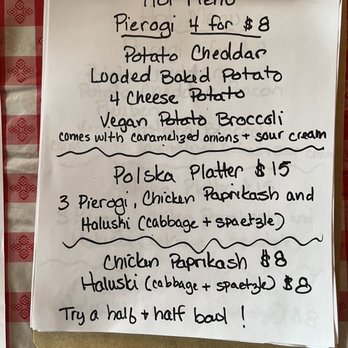 Hot Menu
Pierogi 4 for $8
Potato Cheddar
Loaded Baked Potato
4 Cheese Potato
Vegan Potato Broccoli
comes with caramelized onions + sour cream
Polska Platter $15
3 Pierogi, Chicken Paprikash and
Haluski (cabbage + spaetzle)
Chicken Paprikash $8
Haluski (cabbage + spaetzle) $8
Try a half + half bowl!